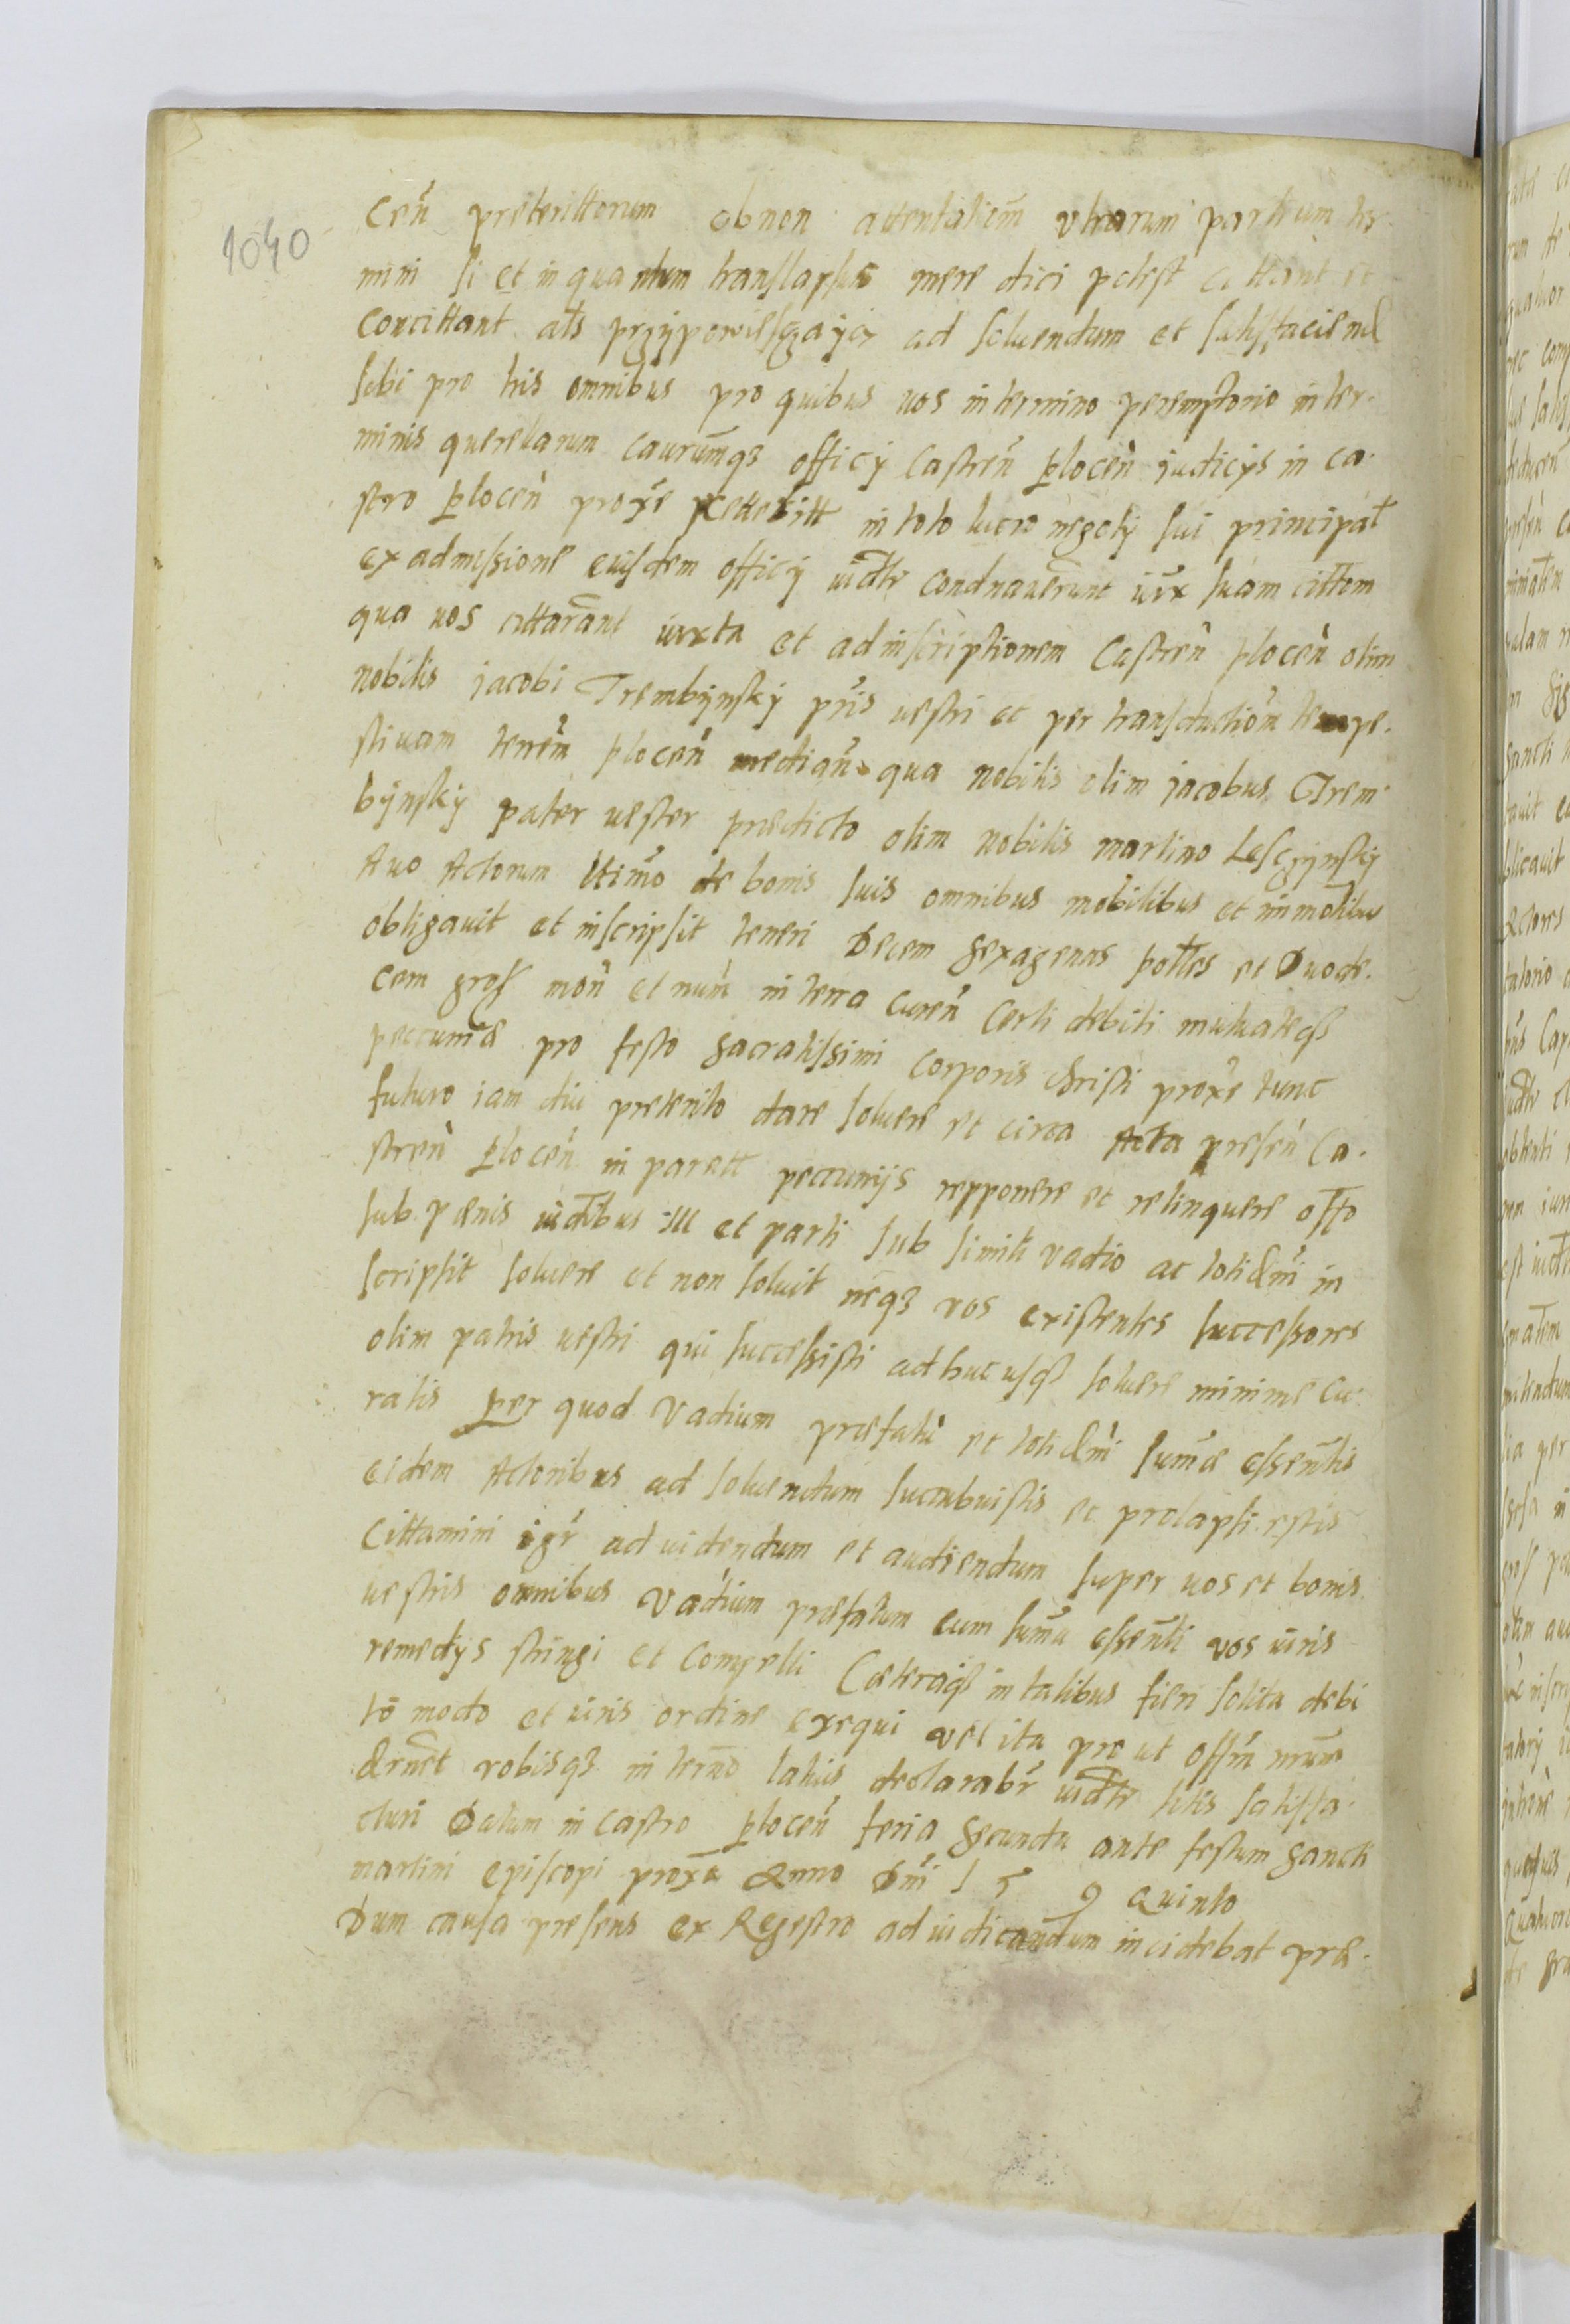 1040
Cen̄ preterittorum ob non attentatiom̄ vtrarum partium ter-
mini si et in quantum translapsus mere dici potest cittant et
Concittant als przypowiesczayą ad soluendum et satisfaciend
sibi pro his omnibus pro quibus vos in termino peremptorio in ter-
minis querelarum Caurumqз officij Castren̄ plocen̄ judicijs in ca-
stro plocen̄ proxe in toto lucro negotij sui principat
ex admissione eiusdem officij iudte condnauerunt iux suam cittom
qua vos cittarānt iuxta et ad inscriptionem Castren̄ plocen̄ olim
nobilis jacobi Trembijnskij pris̄ vestri et per transductiom̄ tempe-
stiuam terren̄ plocen̄ median̄ qua nobilis olim jacobus Trem-
bijnskij pater vester predicto olim nobilis martino Lesczijnskij
Auo Actorum ltimo de bonis suis omnibus mobilibus et immolibus
obligauit et inscripsit teneri Decem sexagenas polles et Duode-
cem gros mon̄ et num̄ in terra curen̄ Certi debiti mutuateqз
peccuniæ pro festo sacratissimi Corporis christi proxe tunc
futuro iam diu preterito dare soluere et circa Acta presen̄ Ca-
stren̄ plocen̄ in paratt peccunijs repponere et relinquere offo
sub pænis iudibus III et parti sub simili vadio ac totidm̄ in
scripsit soluere et non soluit neqз vos existentes successores
olim patris vestri qui successisti ad huc usqз soluere minime cu-
ratis per quod Vadium præfatū et totidm̄ sumæ essentis
eidem Actoribus ad soluendum succubuistis et prolapsi estis
Cittamini igr̄ ad uidendum et audiendum super vos et bonis
vestris omnibus Vadium præfatum cum suma essenti vos iuris
remedijs stringi et compelli Cæteraqз in talibus fieri solita debi
to modo et iuris ordine exequi vel ita pro ut offm̄ nrum
dr̄net vobisqз in termno latius declarabr̄ iudte litis satisfa-
cturi Datum in Castro plocen̄ feria secunda ante festum sancti
martini Episcopi proxa Anno Dni 1 5 9 Quinto
Dum causa presens ex Regestro ad iudicandum incidebat præ-